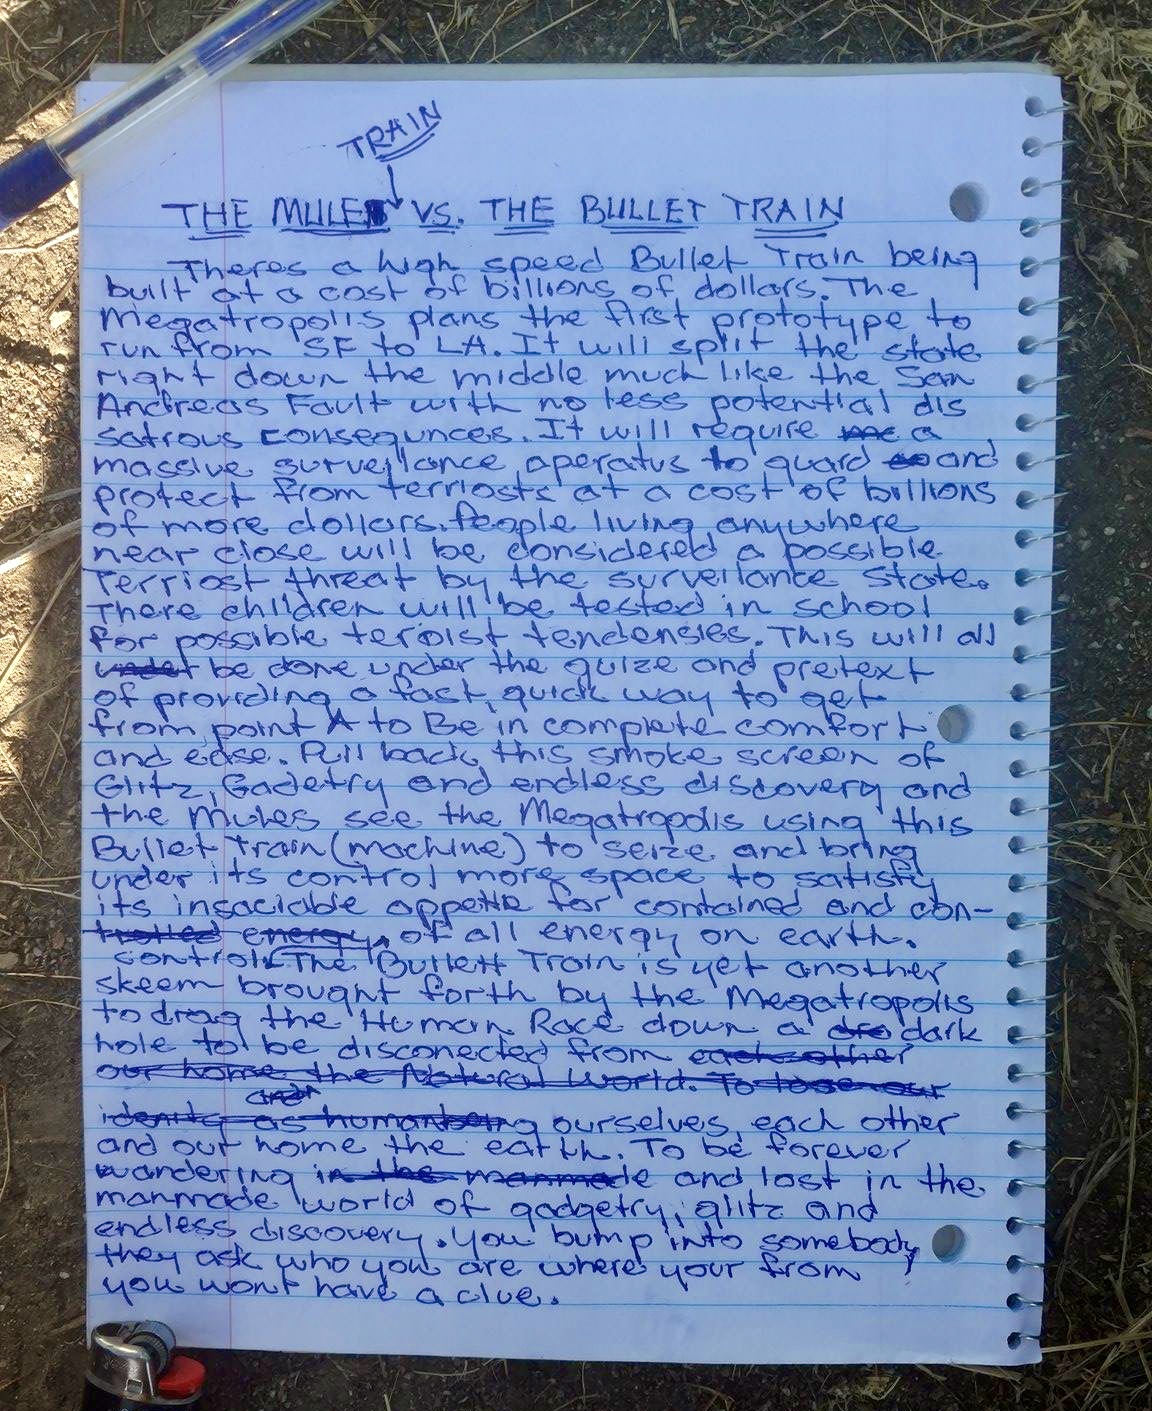 TRAIN
THE MULE VS. THE BULLET TRAIN
Theres a high speed Bullet Train being
built at a cost of billions of dollars. The
Megatropolis plans the first prototype to
run from SF to LA. It will split the state
right down the middle much like the San
Andreas Fault with no less potential dis
satrous consequnces. It will require a
massive surveilance aperatus to guard and
protect from terriosts at a cost of billions
of more dollars. People living anywhere
near close will be considered a possible
Terriost threat by the surveilance state.
There children will be tested in school
for possible teroist tendensies. This will all
be done under the guize and pretext
of providing a fast, quick way to get
from point A to Be in complete comfort
and ease. Pull back this smoke screen of
Glitz, Gadetry and endless discovery and
the Mules see the Megatropolis using this
Bullet Train (machine) to seize and bring
under its control more space to satisfy
its insaciable appetite for contained and con-
trolled energy, of all energy on earth.
control. The Bullett Train is yet another
skeem brought forth by the Megatropolis
to drag the Human Race down a dark
hole to be disconected from each other
our home the Natural World. To lose our
and
idenity as human being ourselves, each other
and our home the earth. To be forever
wandering in the manmade and lost in the
manmade world of gadgetry, glitz and
endless discovery. You bump into somebody,
they ask who you are where your from
you wont have a clue.